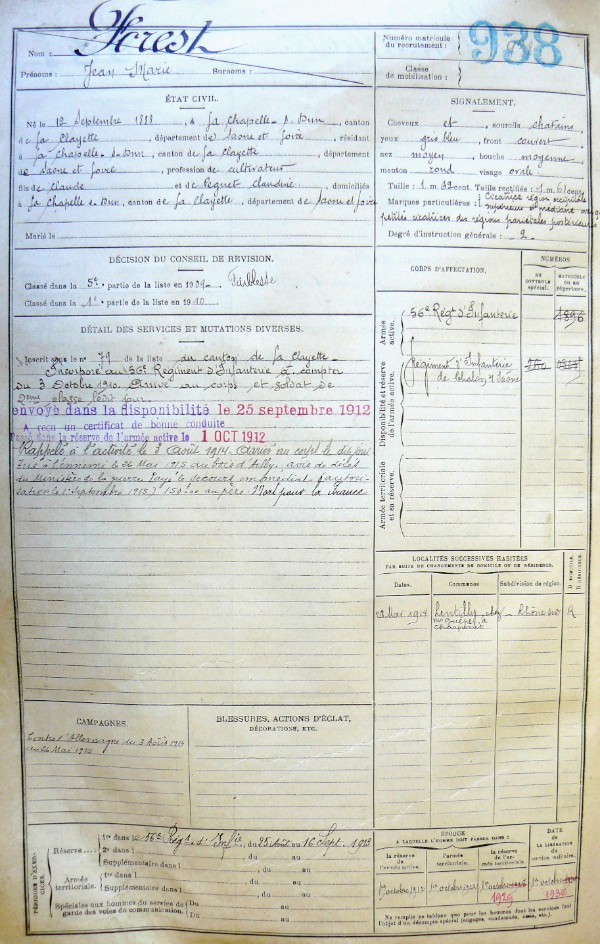 Nom : Forest
Prénoms : Jean Marie Surnoms :
Numéro matricule du recrutement : 938
Classe de mobilisation :
ÉTAT CIVIL.
Né le 12 Septembre 1888, à la Chapelle-s-Dun, canton
de la Clayette, département de Saône et Loire, résidant
à la Chapelle-s-Dun, canton de la Clayette, département
de Saône et Loire, profession de cultivateur
fils de Claude et de Péguet Claudine, domiciliés
à la Chapelle-s-Dun, canton de la Clayette, département de Saône et Loire
Marié le
SIGNALEMENT.
Cheveux et sourcils chatains
yeux gris bleu, front couvert
nez moyen, bouche moyenne
menton rond visage ovale
Taille : 1 m. cent. Taille rectifiée : 1 m. 61 cent.
Marques particulières : Cicatrice région occipitale
supérieure et médiane
petites cicatrices des régions pariétales postérieures
Degré d'instruction générale : 2
DÉCISION DU CONSEIL DE REVISION.
Classé dans la 5e partie de la liste en 1909 Faiblesse
Classé dans la 1e partie de la liste en 1910
CORPS D'AFFECTATION.
NUMÉROS
AU CONTROLE spécial.
MATRICULE OU AU répertoire.
Armée active.
56e Régt d'Infanterie
Disponibilité et réserve de l'armée active.
Régiment d'Infanterie
de Chalon s/ Saône
Armée territoriale et sa réserve.
DÉTAIL DES SERVICES ET MUTATIONS DIVERSES.
Inscrit sous le n° 79 de la liste du canton de la Clayette
Incorporé au 56e Régiment d'Infanterie à compter
du 3 Octobre 1910. Arrivé au corps et soldat de
2ème classe ledit jour.
envoyé dans la disponibilité le 25 septembre 1912
A reçu un certificat de bonne conduite
Passé dans la réserve de l'armée active le 1 OCT 1912
Rappelé à l'activité le 3 août 1914. Arrivé au corps le dit jour
Tué à l'ennemi le 26 Mai 1915 au bois d'Ailly, avis de décès
du Ministère de la guerre. Payé le secours immédiat (autori-
sation le 1er Septembre 1915) 150 au père Mort pour la France
LOCALITÉS SUCCESSIVES HABITÉES
PAR SUITE DE CHANGEMENTS DE DOMICILE OU DE RÉSIDENCE.
Dates. Communes Subdivision de région. D. DOMICILE. R. RÉSIDENCE.
Mai 1914 Lentilly chez Rhône R
CAMPAGNES.
Contre l'Allemagne du 3 Août 1914
au 26 Mai 1915
BLESSURES, ACTIONS D'ÉCLAT,
DÉCORATIONS, ETC.
PÉRIODES D'EXERCICES.
Réserve
1re dans le 56e Régt d'Infie, du 25 Août au 16 Sept. 1913
2e dans l , du au
Supplémentaire dans l , du au
Armée territoriale.
1re dans l , du au
Supplémentaire dans l , du au
Spéciales aux hommes du service de garde des voies de communication. du au
ÉPOQUE
A LAQUELLE L'HOMME DOIT PASSER DANS :
la réserve de l'armée active
l'armée territoriale.
la réserve de l'armée territoriale
DATE DE LA LIBÉRATION du service militaire.
1er octobre 1912 1er octobre 1er octobre 1er octobre
Ne remplir ce tableau que pour les hommes dont les services font
l'objet d'un décompte spécial (engagés, condamnés, omis, etc.).